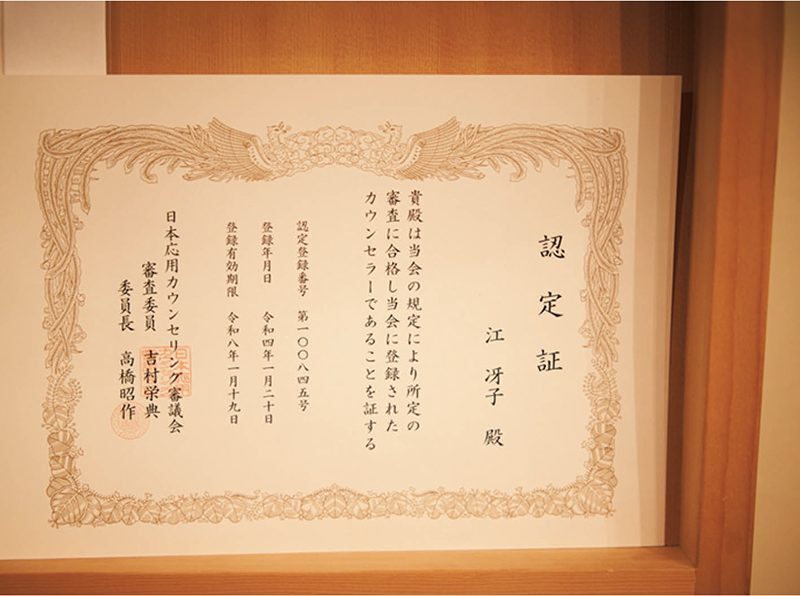 認定証
江 冴子 殿
貴殿は当会の規定により所定の
審査に合格し当会に登録された
カウンセラーであることを証する
認定登録番号 第一〇〇八四五号
登録年月日 令和四年一月二十日
登録有効期限 令和八年一月十九日
日本応用カウンセリング審議会
審査委員 吉村栄典
委員長 高橋昭作